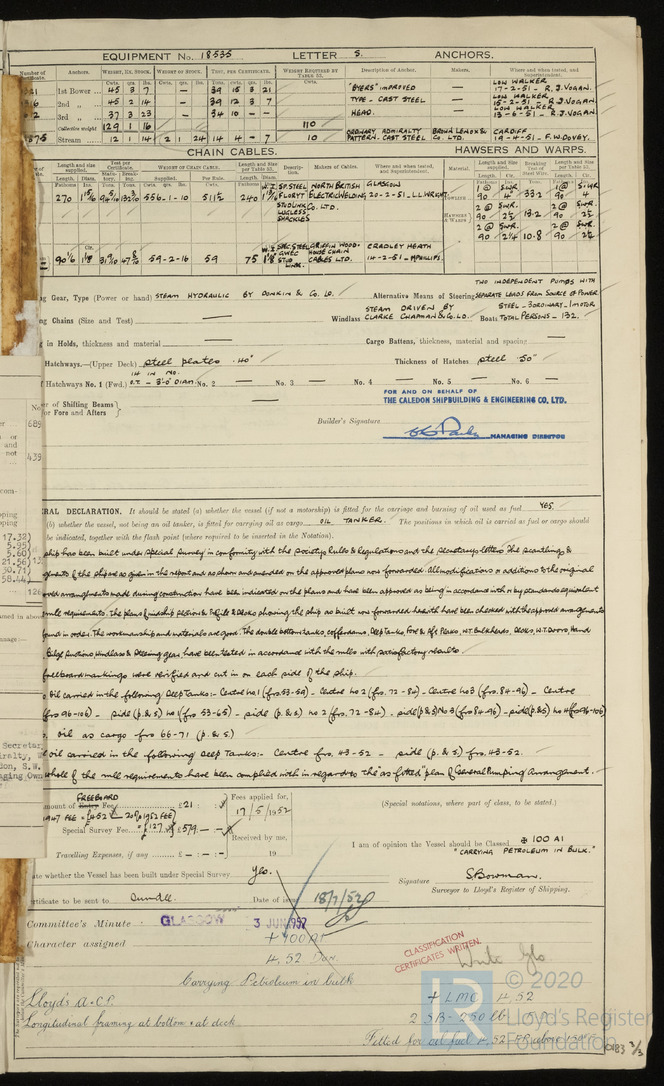 EQUIPMENT No. 18535 LETTER S. ANCHORS.
Anchors. WEIGHT, EX. STOCK. WEIGHT OF STOCK. TEST, PER CERTIFICATE. WEIGHT REQUIRED BY TABLE 53. Description of Anchor. Makers. Where and when tested, and Superintendent.
Cwts. qrs. lbs. Cwts. qrs. lbs. Tons. cwts. qrs. lbs. Cwts.
1st Bower 45 3 7 — 39 15 3 21 "BYERS" IMPROVED LOW WALKER 17-2-51 - R.J. VOGAN.
2nd „ 45 2 14 — 39 12 3 7 TYPE - CAST STEEL LOW WALKER 15-2-51 - R.J. VOGAN.
3rd „ 37 3 23 — 34 10 — — HEAD. LOW WALKER 13-6-51 - R.J. VOGAN.
Collective weight 129 1 16 110
Stream 12 1 14 2 1 24 14 4 — 7 10 ORDINARY ADMIRALTY PATTERN. CAST STEEL BROWN LENOX & CO. LTD. CARDIFF 19-4-51 - F.W. DOVEY.
CHAIN CABLES. HAWSERS AND WARPS.
Length and size supplied. Test per Certificate. WEIGHT OF CHAIN CABLE. Length and Size per Table 53. Description. Makers of Cables. Where and when tested, and Superintendent. Material. Length and Size supplied. Breaking Test of Steel Wire. Length and Size per Table 53.
270 556-1-10 511½ 240 SP. STEEL FLORYT STUDLINK LUGLESS SHACKLES NORTH BRITISH ELECTRIC WELDING CO. LTD. GLASGOW 20-2-51 - L.L. WRIGHT.
1 @ 90 SWR 4 33·2 1 @ 90 SWR 4
2 @ 90 SWR 2½ 13·2 2 @ 90 SWR 2½
2 @ 90 SWR 2¼ 10·8 2 @ 90 SWR 2½
59-2-16 59 75 SPEC. STEEL STUD LINK GRIFFIN WOODHOUSE CHAIN CABLES LTD. CRADLEY HEATH 14-2-51 - M PHILLIPS.
Gear, Type (Power or hand) STEAM HYDRAULIC BY DONKIN & CO. LD. Alternative Means of Steering TWO INDEPENDENT PUMPS WITH SEPARATE LEADS FROM SOURCE OF POWER
Chains (Size and Test) — Windlass STEAM DRIVEN BY CLARKE CHAPMAN & CO. LD. Boats STEEL - 3 ORDINARY - 1 MOTOR TOTAL PERSONS - 132.
in Holds, thickness and material — Cargo Battens, thickness, material and spacing —
Hatchways.—(Upper Deck) Steel plates ·40" Thickness of Hatches Steel ·50"
Hatchways No. 1 (Fwd.) 14 IN NO. O.T. - 3'0" DIAM. No. 2 — No. 3 — No. 4 — No. 5 — No. 6 —
of Shifting Beams or Fore and Afters —
FOR AND ON BEHALF OF
THE CALEDON SHIPBUILDING & ENGINEERING CO, LTD.
Builder's Signature MANAGING DIRECTOR
GENERAL DECLARATION. It should be stated (a) whether the vessel (if not a motorship) is fitted for the carriage and burning of oil used as fuel YES.
(b) whether the vessel, not being an oil tanker, is fitted for carrying oil as cargo OIL TANKER. The positions in which oil is carried as fuel or cargo should
be indicated, together with the flash point (where required to be inserted in the Notation).
ship has been built under Special Survey in conformity with the Society's Rules & Regulations and the Secretary's letters. The scantlings &
arrangements of the ship are as given in the report and as shown and amended on the approved plans now forwarded. All modifications or additions to the original
approved arrangements made during construction have been indicated on the plans and have been approved as being in accordance with or by standards equivalent
rule requirements. The plans of midship section & Profile & Decks showing the ship as built now forwarded herewith have been checked with the approved arrangements
found in order. The workmanship and materials are good. The double bottom tanks, cofferdams, Deep Tanks, Fore & Aft Peaks, W.T. Bulkheads, Decks, W.T. Doors, Hand
Bilge suctions, Windlass & Steering gear, have been tested in accordance with the rules with satisfactory results.
freeboard markings were verified and cut in on each side of the ship.
oil carried in the following Deep Tanks:- Centre No 1 (frs. 53-59) - Centre No 2 (frs. 72-84) - Centre No 3 (frs. 84-96) - Centre
(frs 96-106) - side (p. & s.) No 1 (frs. 53-65) - side (p. & s.) No 2 (frs. 72-84) - side (p & s) No 3 (frs 84-96) - side (p & s) No 4 (frs 96-106)
oil as cargo frs 66-71 (p. & s.)
oil carried in the following Deep Tanks:- Centre frs. 43-52 - side (p. & s) frs. 43-52.
whole of the rule requirements have been complied with in regard to the "as fitted" plan of General Pumping Arrangement.
FREEBOARD
Amount of Fee £21 : : Fees applied for,
1947 FEE = 17/5/1952
Special Survey Fee £579 : — : — Received by me,
Travelling Expenses, if any £ — : — : — 19
(Special notations, where part of class, to be stated.)
I am of opinion the Vessel should be Classed ✠ 100 A1
"CARRYING PETROLEUM IN BULK."
State whether the Vessel has been built under Special Survey Yes.
Signature S. Bowman.
Surveyor to Lloyd's Register of Shipping.
Certificate to be sent to Dundee. Date of issue 18/7/52
Committee's Minute GLASGOW 3 JUN 1952
Character assigned + 100 A1
4, 52 Dun.
CLASSIFICATION
CERTIFICATES WRITTEN
Carrying Petroleum in bulk
Lloyd's A & C.P. + LMC 4, 52
Longitudinal framing at bottom & at deck
Fitted for oil fuel 4, 52 F.P. above 150°F
LR © 2020
Lloyd's Register
Foundation
0183 3/3